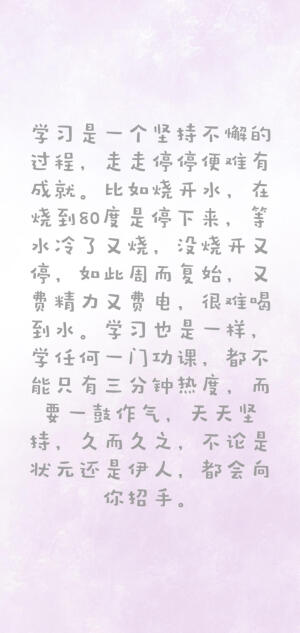 学习是一个坚持不懈的
过程，走走停停便难有
成就。比如烧开水，在
烧到80度是停下来，等
水冷了又烧，没烧开又
停，如此周而复始，又
费精力又费电，很难喝
到水。学习也是一样，
学任何一门功课，都不
能只有三分钟热度，而
要一鼓作气，天天坚
持，久而久之，不论是
状元还是伊人，都会向
你招手。